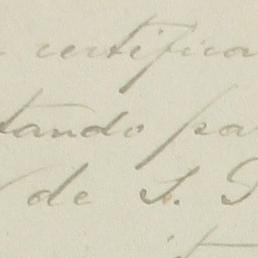 certifica
tando pa
de S. P